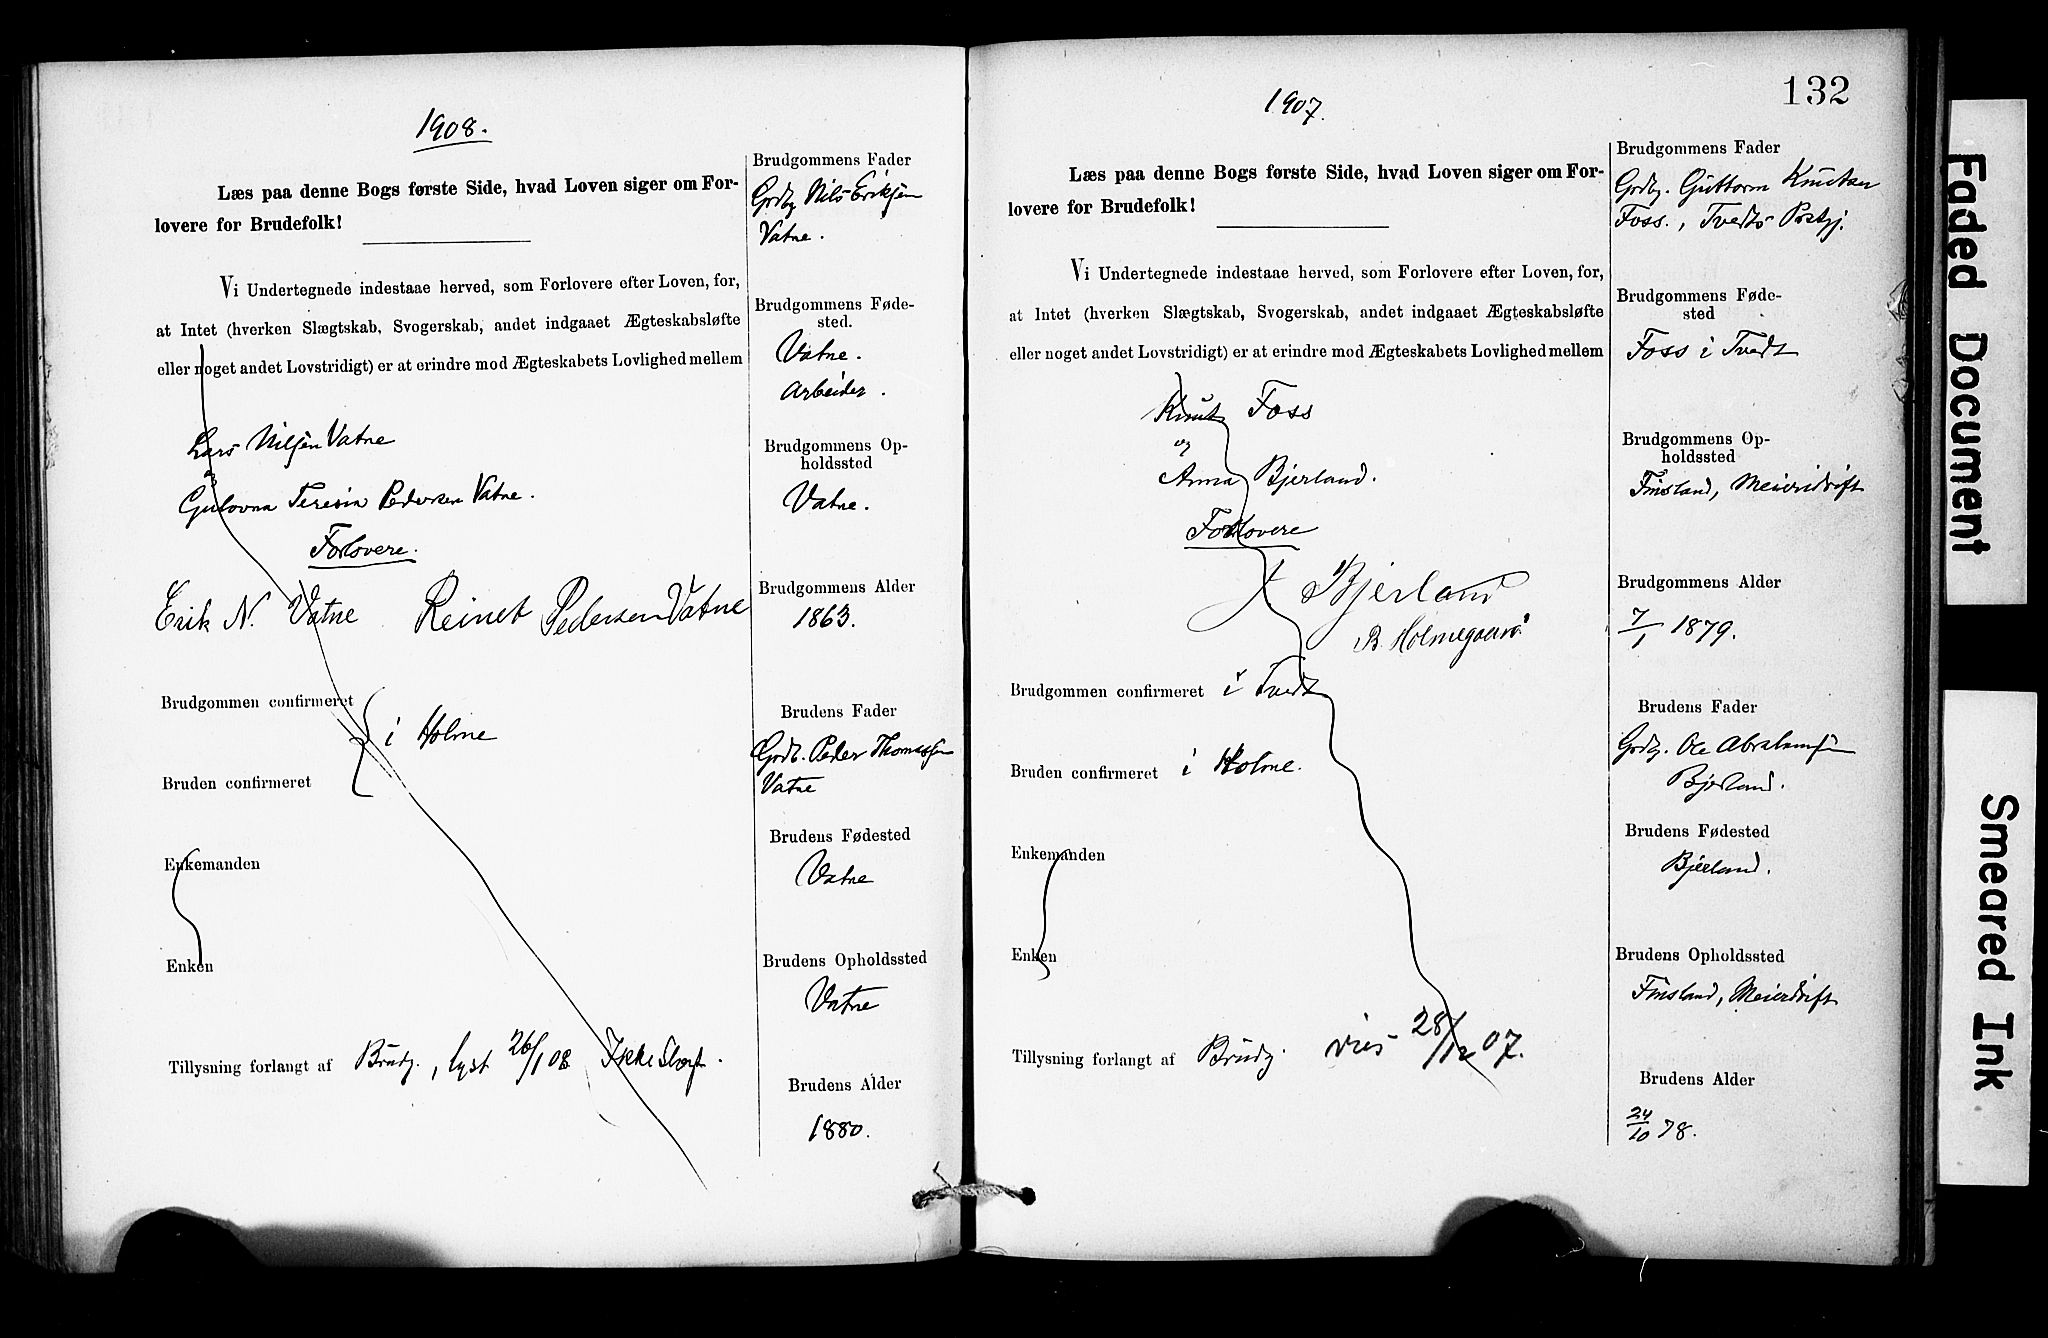 1908.
Læs paa denne Bogs første Side, hvad Loven siger om For-
lovere for Brudefolk!
Vi Undertegnede indestaae herved, som Forlovere efter Loven, for,
at Intet (hverken Slægtskab, Svogerskab, andet indgaaet Ægteskabsløfte
eller noget andet Lovstridigt) er at erindre mod Ægteskabets Lovlighed mellem
Lars Nilsen Vatne
Gulovna Teresia Pedersen Vatne.
Forlovere.
Erik N. Vatne Reinet Pedersen Vatne
Brudgommen confirmeret
i Holme
Bruden confirmeret
Enkemanden
Enken
Tillysning forlangt af Brudg., lyst 26/1 08 Ikke
Brudgommens Fader
Grdbg Nils Eriksen
Vatne.
Brudgommens Føde-
sted.
Vatne.
Arbeider.
Brudgommens Op-
holdssted
Vatne.
Brudgommens Alder
1863.
Brudens Fader
Grdb. Peder Thomassen
Vatne
Brudens Fødested
Vatne
Brudens Opholdssted
Vatne
Brudens Alder
1880.
132
1907.
Læs paa denne Bogs første Side, hvad Loven siger om For-
lovere for Brudefolk!
Vi Undertegnede indestaae herved, som Forlovere efter Loven, for,
at Intet (hverken Slægtskab, Svogerskab, andet indgaaet Ægteskabsløfte
eller noget andet Lovstridigt) er at erindre mod Ægteskabets Lovlighed mellem
Knut Foss
og
Anna Bjerland.
Forlovere
Bjerland
B. Holmegaard
Brudgommen confirmeret i Tvedt
Bruden confirmeret i Holme.
Enkemanden
Enken
Tillysning forlangt af Brudg. vies 28/12 07.
Brudgommens Fader
Grdbg. Guttorm Knutsen
Foss., Tvedts Prstgj.
Brudgommens Føde-
sted
Foss i Tvedt
Brudgommens Op-
holdssted
Finsland, Meieridrift
Brudgommens Alder
7/1 1879.
Brudens Fader
Grdbg. Ole Abrahamsen
Bjerland.
Brudens Fødested
Bjerland.
Brudens Opholdssted
Finsland, Meieridrift
Brudens Alder
24/10 78.
Faded Document
Smeared Ink